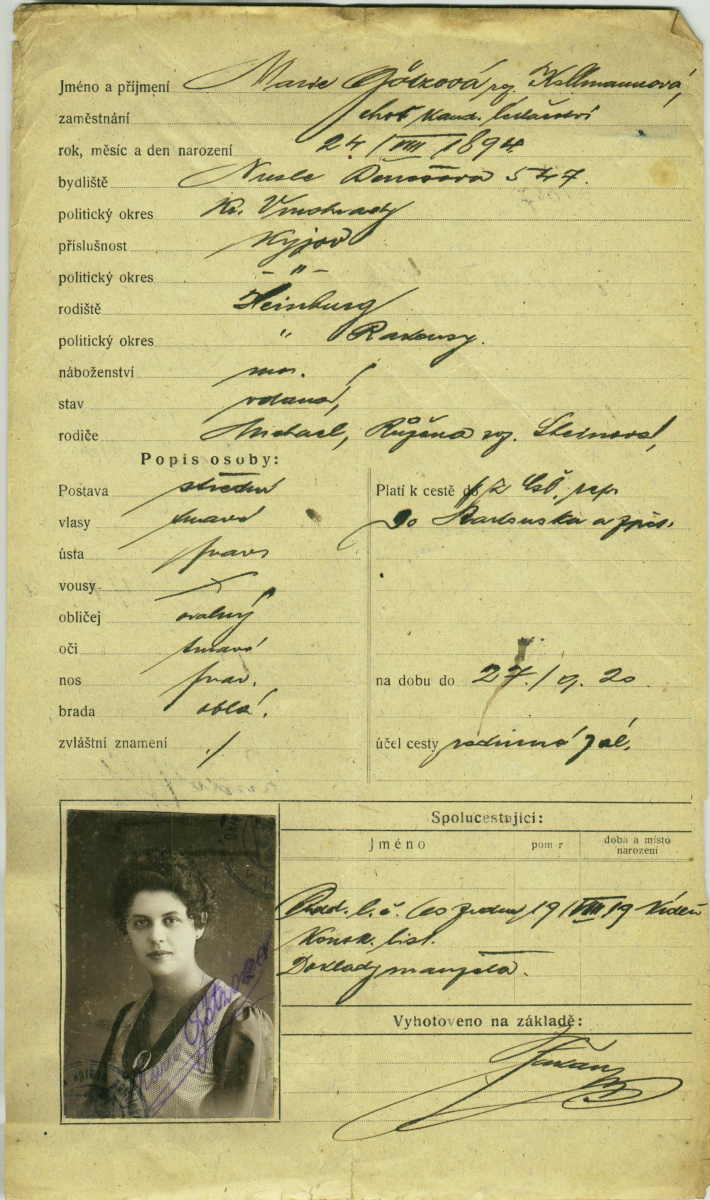 Jméno a příjmení Marie Götzová roz. Kollmannová,
zaměstnání choť kand.
rok, měsíc a den narození 24/VIII 1894.
bydliště Nusle 547.
politický okres Kr. Vinohrady
příslušnost Kyjov
politický okres – " –
rodiště Heinburg
politický okres " Rakousy.
náboženství mos.
stav vdaná,
rodiče Michael, Růžena roz. Steinová,
Popis osoby:
Postava střední
vlasy tmavé
ústa prav.
vousy
obličej oválný
oči tmavé
nos prav.
brada oblá.
zvláštní znamení ./
Platí k cestě do z Čsl. rep.
do Rakouska a zpět.
na dobu do 27./9. 20
účel cesty rodinné zál.
Spolucestující:
Jméno poměr doba a místo narození
Odd. l. č. 19/VIII 19 Vídeň
Konsk. list.
Doklady manžela.
Vyhotoveno na základě:
Götzova